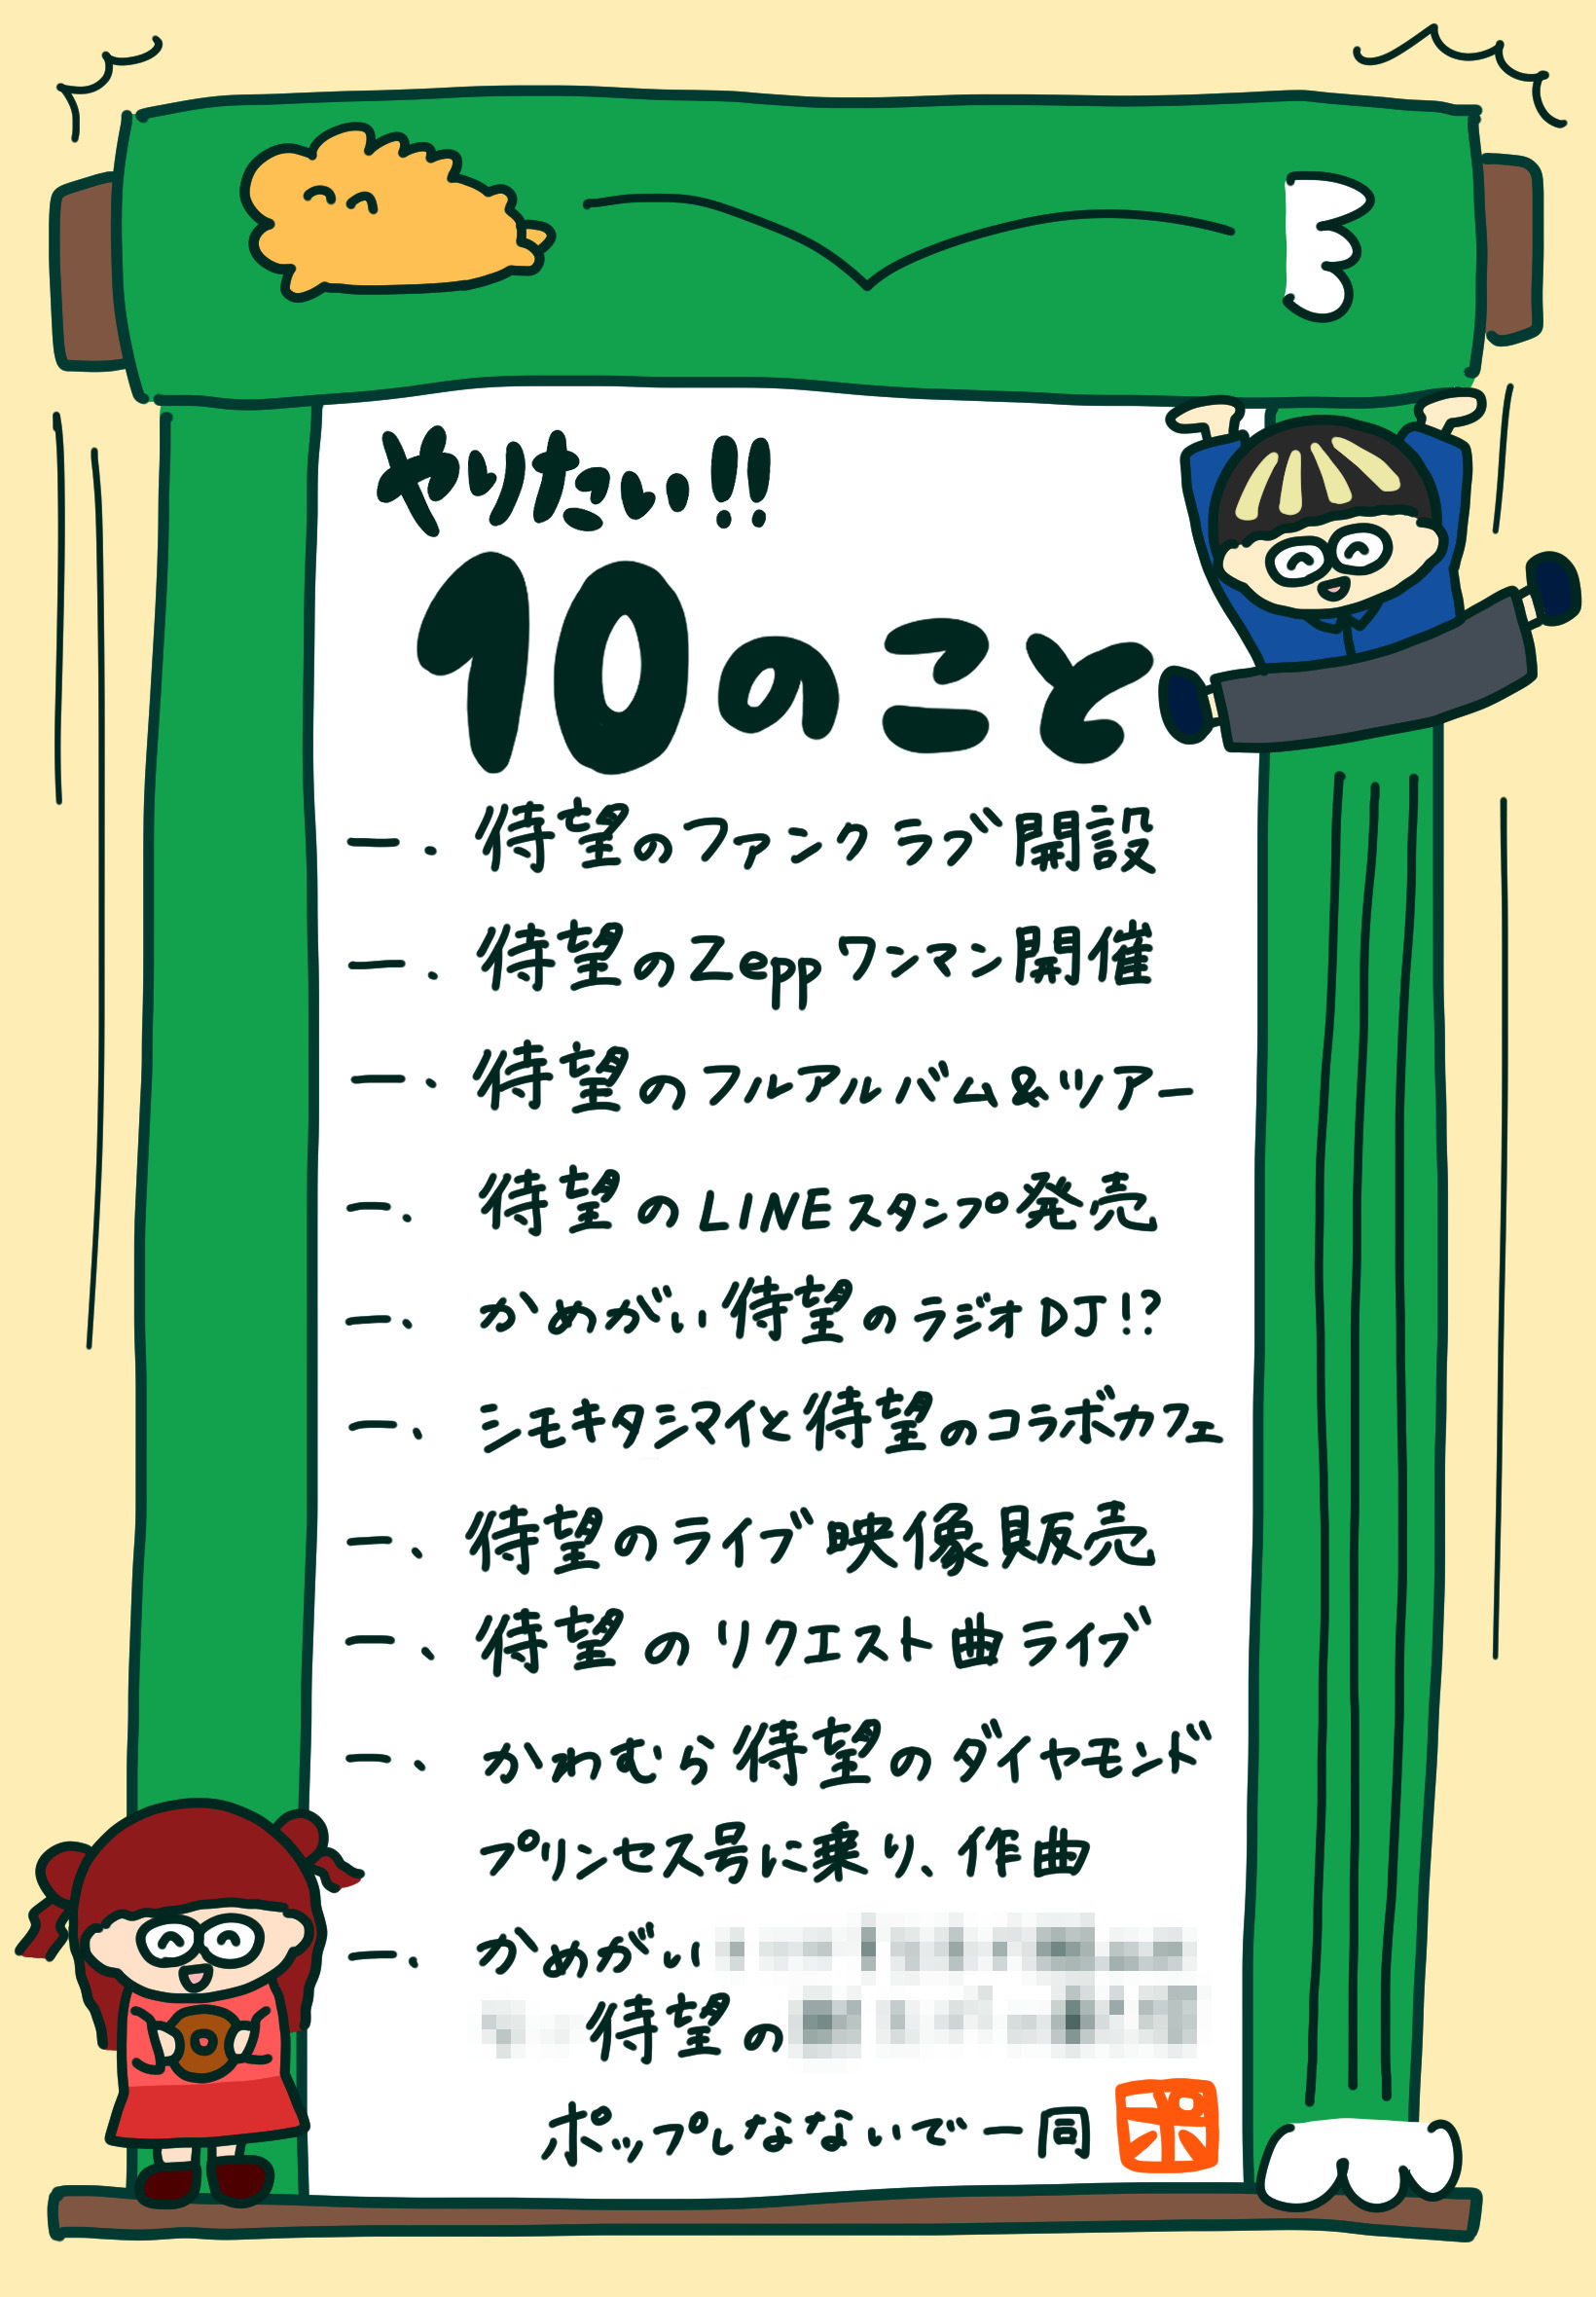 やりたい!!
10のこと
一. 待望のファンクラブ開設
一. 待望のZeppワンマン開催
一. 待望のフルアルバム&ツアー
一. 待望のLINEスタンプ発売
一. かめがい待望のラジオDJ!?
一. シモキタシマイと待望のコラボカフェ
一. 待望のライブ映像販売
一. 待望のリクエスト曲ライブ
一. かわむら待望のダイヤモンド
プリンセス号に乗り、作曲
一. かめがい
待望の
ポップしなないで一同